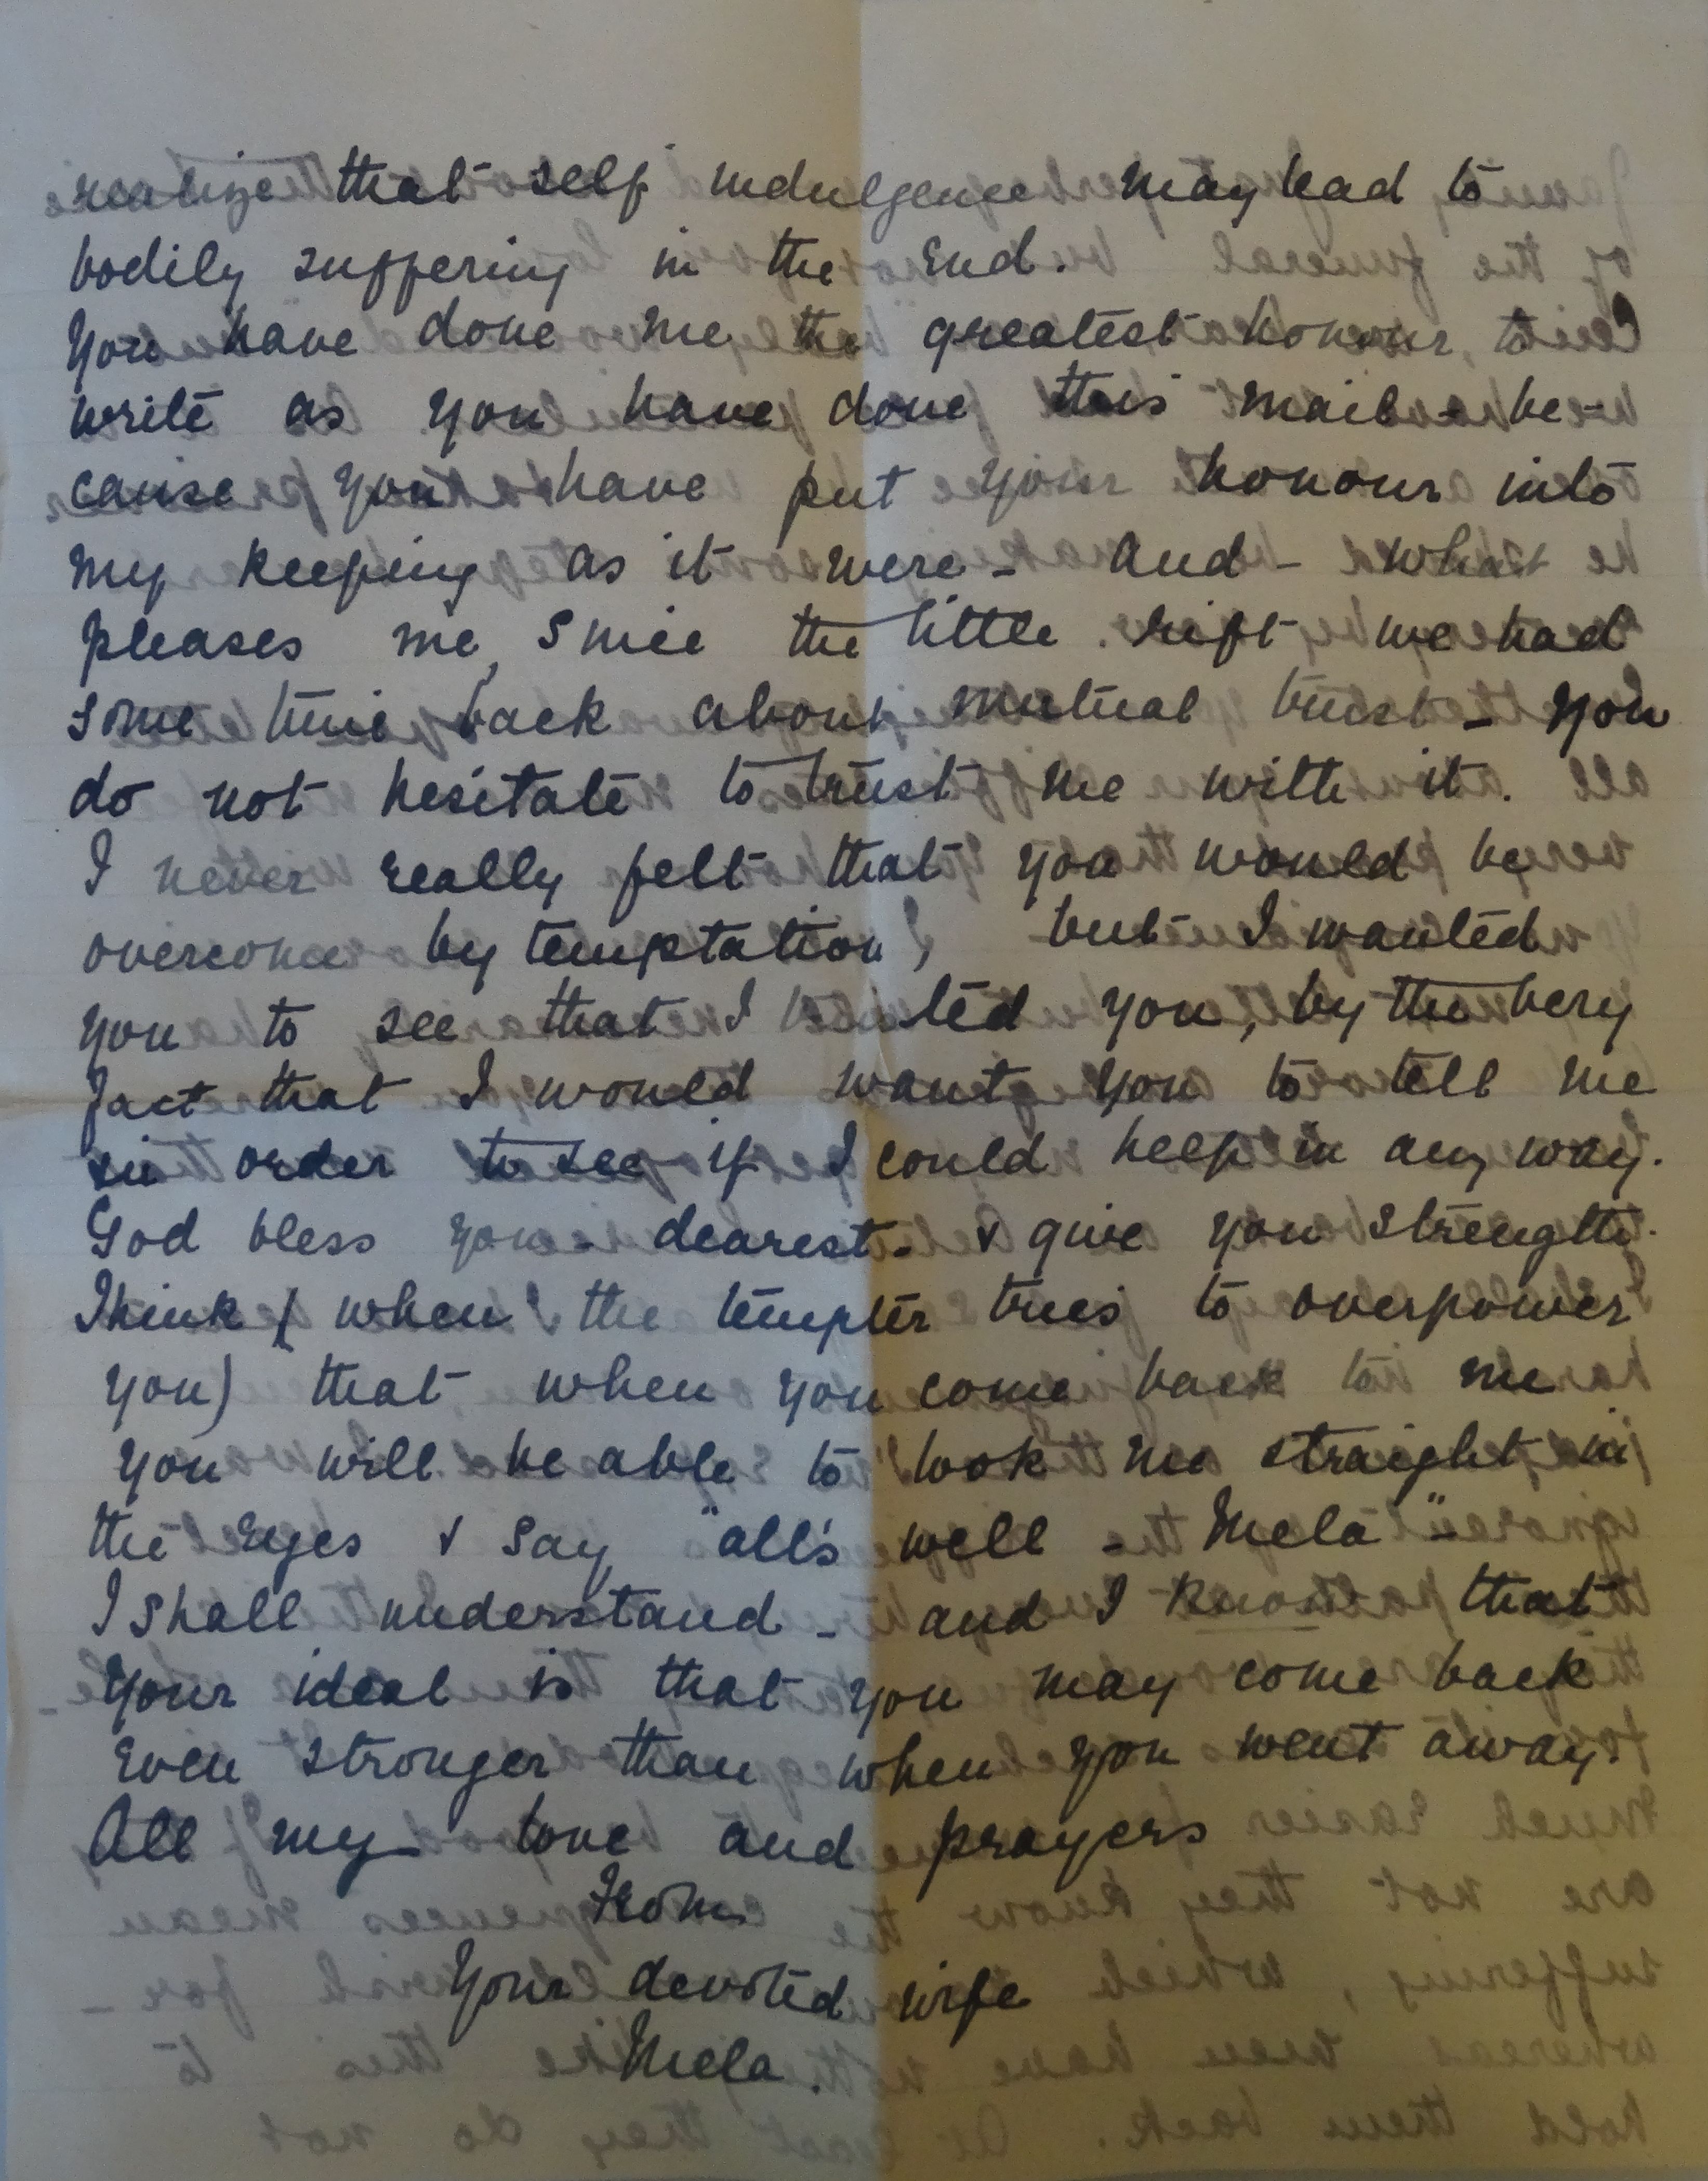 realize that self indulgence may lead to
bodily suffering in the end.
You have done me the greatest honour, to
write as you have done this mail - be-
cause you have put your honour into
my keeping as it were - and - what
pleases me, since the little rift we had
some time back about mutual trust - you
do not hesitate to trust me with it.
I never really felt that you would be
overcome by temptation, but I wanted
you to see that I you, by the very
fact that I would want you to tell me
in order to see if I could help in any way.
God bless you - dearest - & give you strength.
Think (when the tempter tries to overpower
you) that when you come back to me
you will be able to look me straight in
the eyes & say "all's well - Mela" -
I shall understand - and I know that
your ideal is that you may come back
even stronger than when you went away.
All my love and prayers
From
Your devoted wife
Mela.